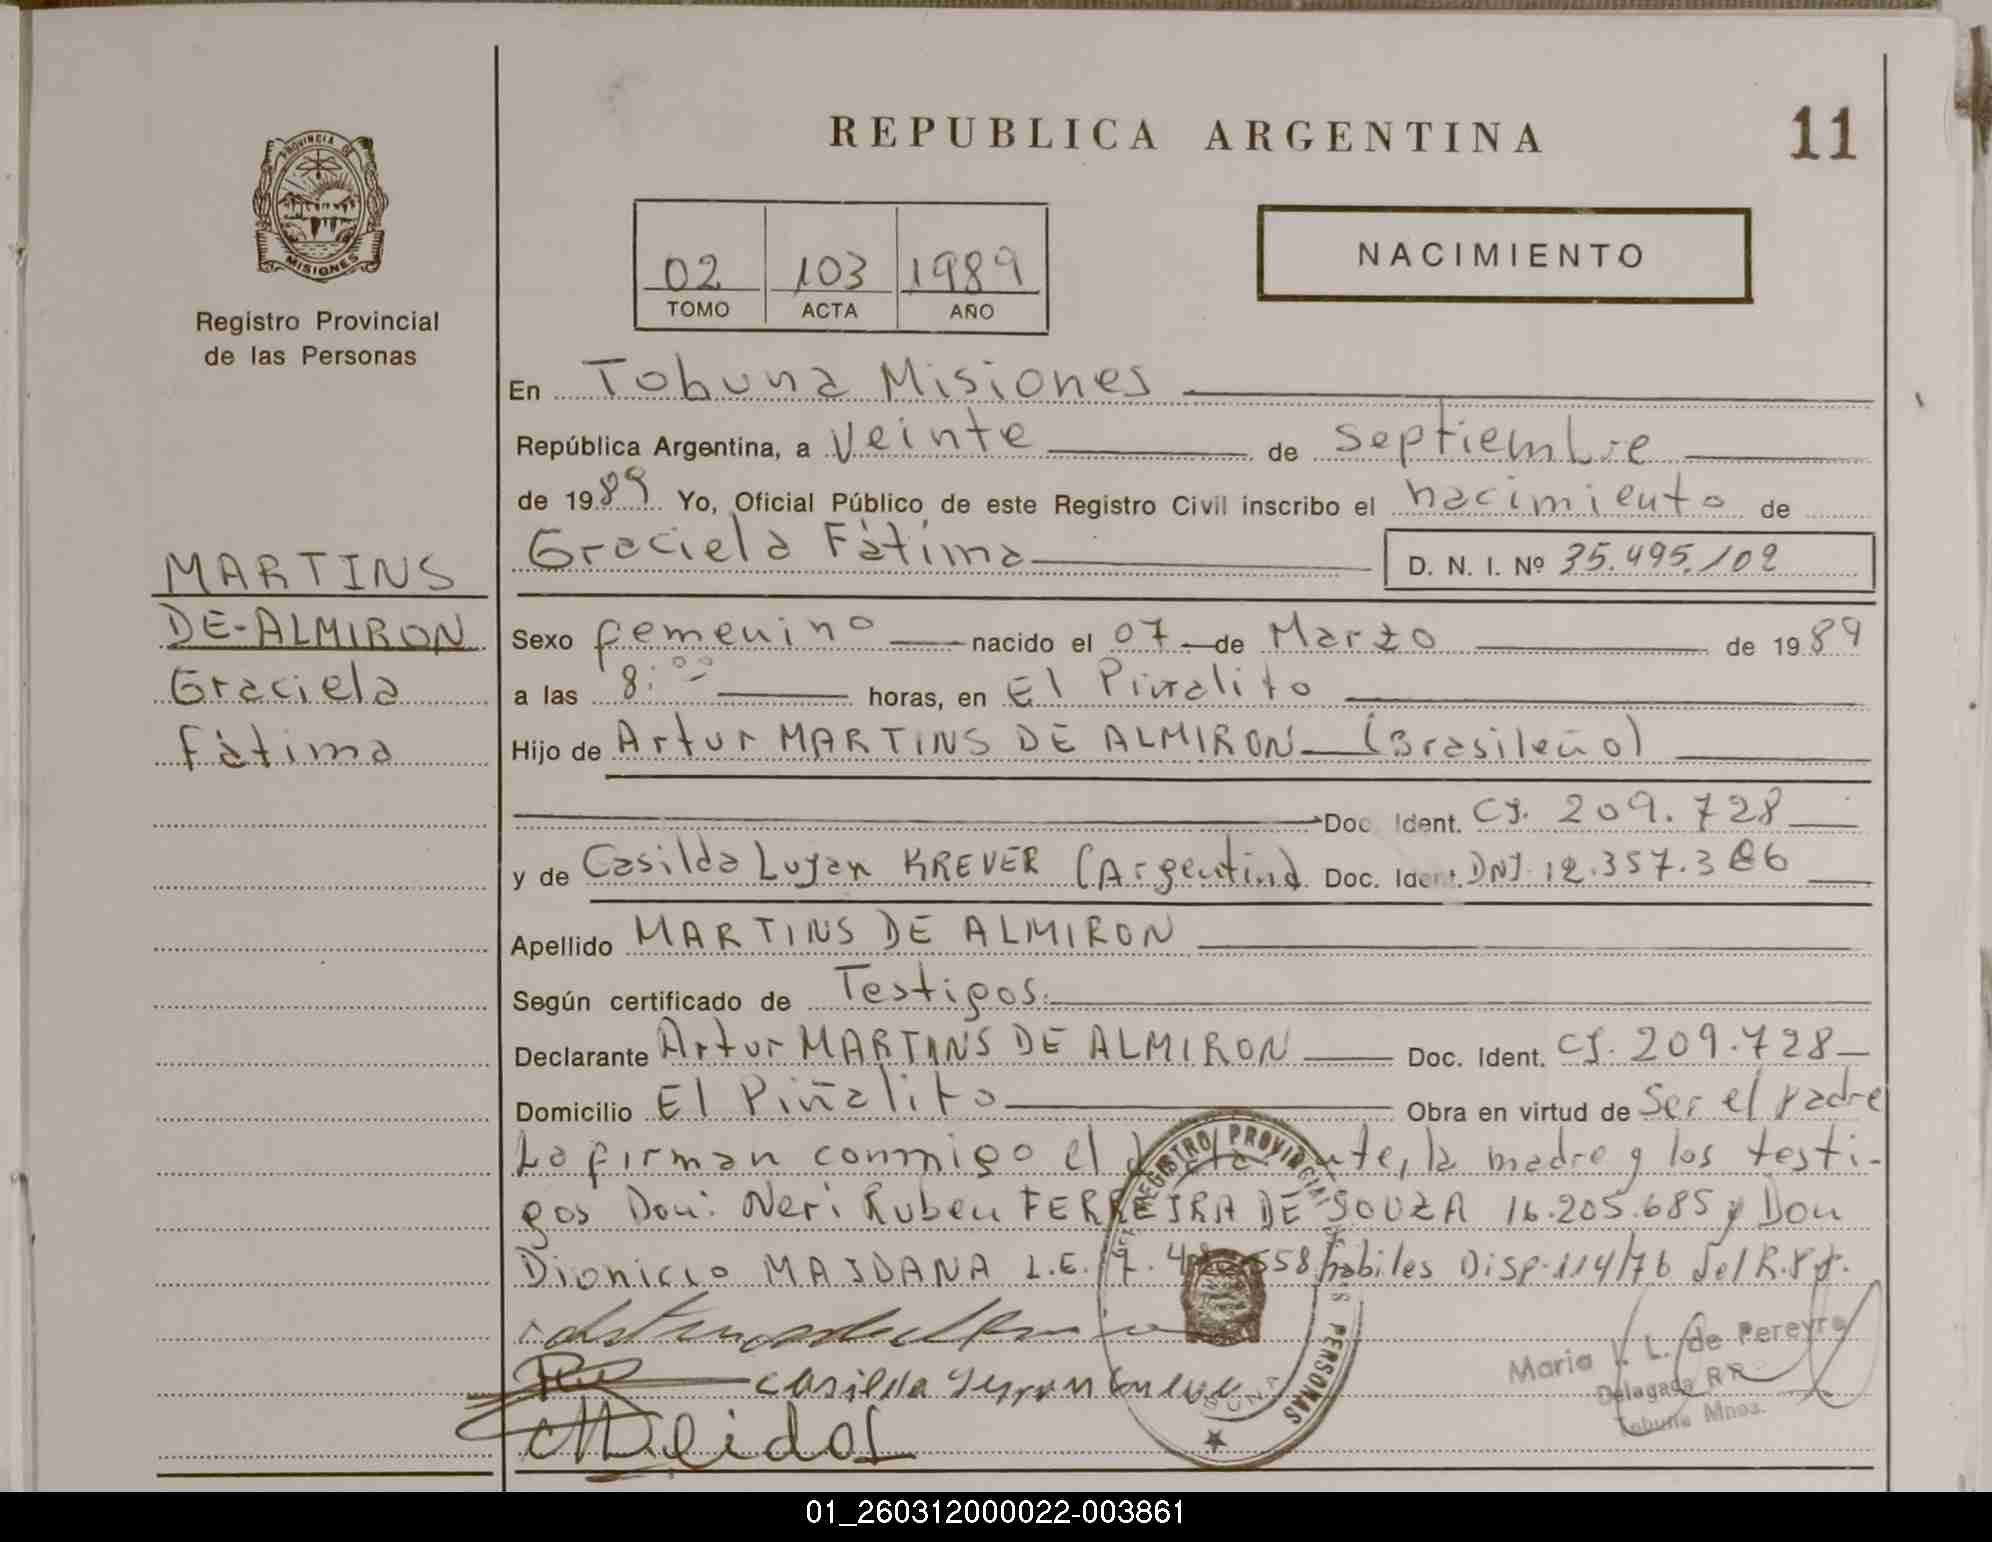 PROVINCIA DE
MISIONES
Registro Provincial
de las Personas
MARTINS
DE-ALMIRON
Graciela
Fàtima
REPUBLICA ARGENTINA
11
02 103 1989
TOMO ACTA AÑO
NACIMIENTO
En Tobuna Misiones
República Argentina, a Veinte de septiembre
de 1989 Yo, Oficial Público de este Registro Civil inscribo el nacimiento de
Graciela Fàtima D. N. I. Nº 35.495.102
Sexo femenino nacido el 07 de Marzo de 1989
a las 8:00 horas, en El Piñalito
Hijo de Artur MARTINS DE ALMIRON (Brasileño)
Doc. Ident. CI. 209.728
y de Casilda Lujan KREVER (Argentina) Doc. Ident. DNI. 12.357.366
Apellido MARTINS DE ALMIRON
Según certificado de Testigos.
Declarante Artur MARTINS DE ALMIRON Doc. Ident. CI. 209.728
Domicilio El Piñalito Obra en virtud de Ser el padre
La firman conmigo el te, la madre y los testi-
gos Don: Neri Ruben FERREIRA DE SOUZA 16.205.685 y Don
Dionicio MAIDANA L.E. 7.4 558 habiles Disp. 114/76 del R.P.P.
REGISTRO PROVINCIAL DE LAS PERSONAS
Casilda
Maria L. de Pereyra
Delegada R.P.
Tobuna Mnes.
01_260312000022-003861